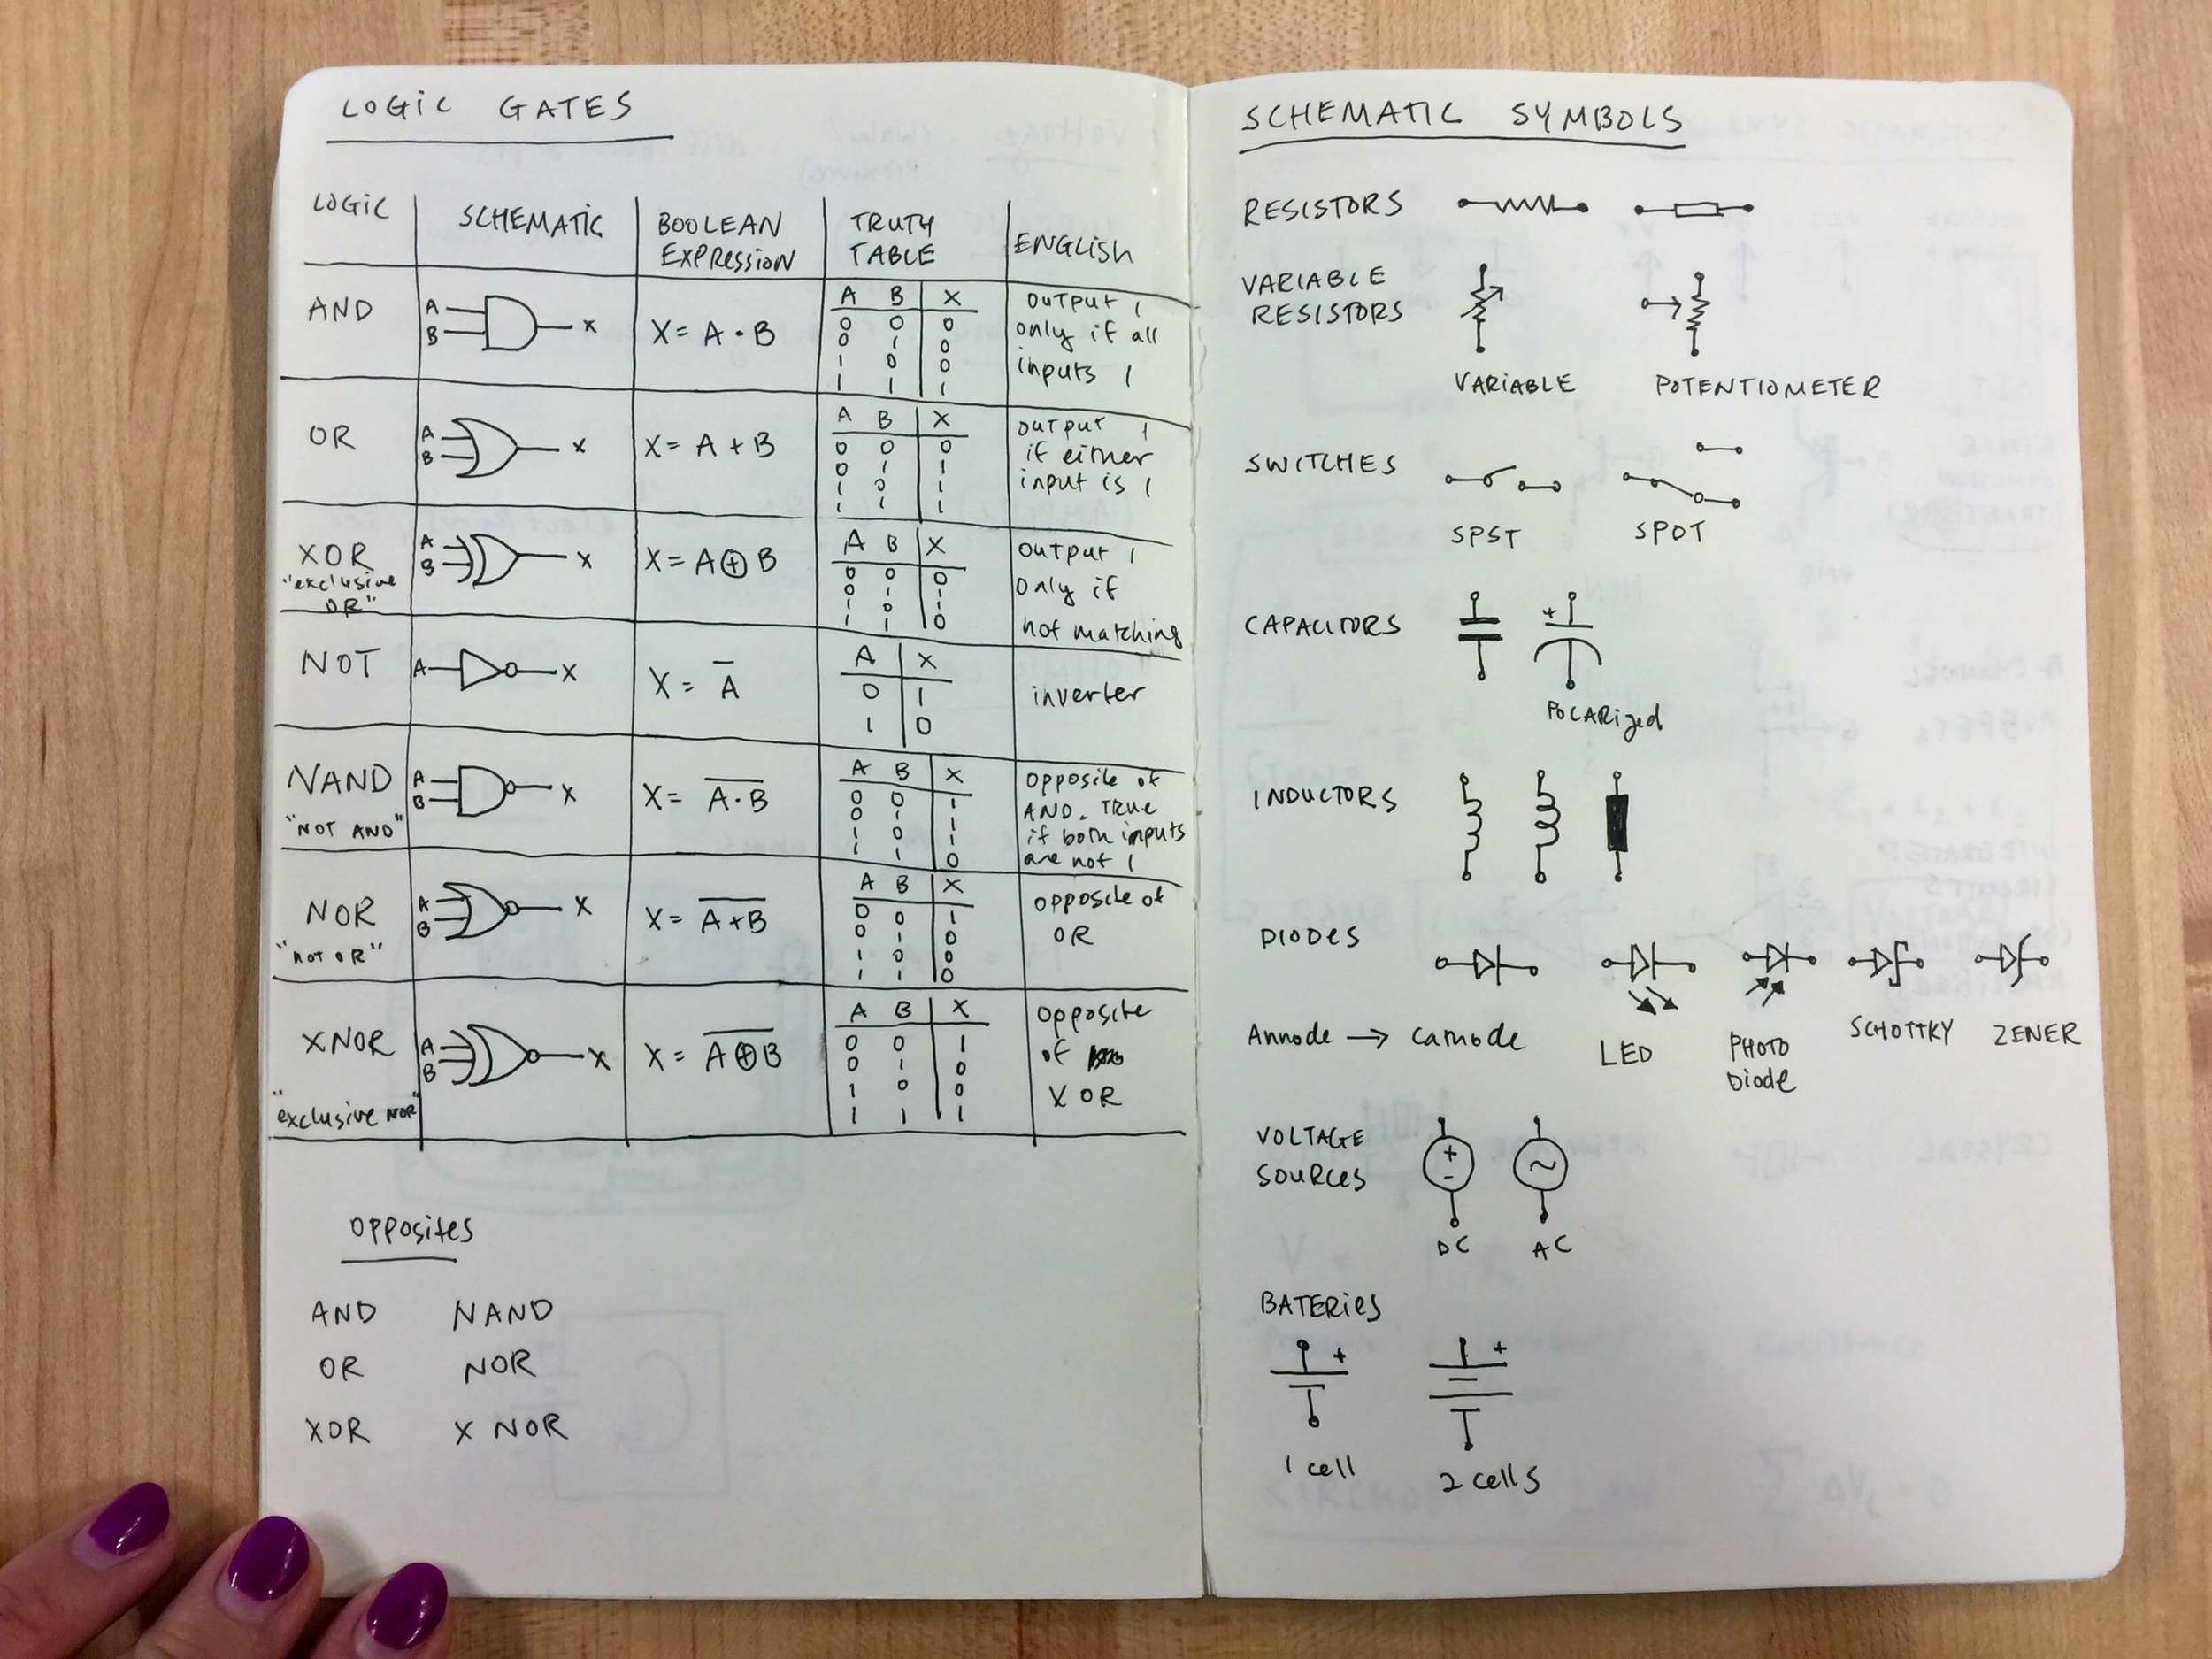 LOGiC GATES
LOGiC SCHEMATIC BOOLEAN EXPRESSiON TRUTH TABLE ENGLiSH
AND
A
B
X
X = A · B
A B X
0 0 0
0 1 0
1 0 0
1 1 1
OUTPUT 1
only if all
inputs 1
OR
A
B
X
X = A + B
A B X
0 0 0
0 1 1
1 0 1
1 1 1
OUTPUT 1
if either
input is 1
XOR
"exclusive
OR"
A
B
X
X = A ⊕ B
A B X
0 0 0
0 1 1
1 0 1
1 1 0
OUTPUT 1
Only if
not matching
NOT
A
X
X = A̅
A X
0 1
1 0
inverter
NAND
"NOT AND"
A
B
X
X = A̅·̅B̅
A B X
0 0 1
0 1 1
1 0 1
1 1 0
OPPOSite of
AND. TRUE
if both inputs
are not 1
NOR
"not OR"
A
B
X
X = A̅+̅B̅
A B X
0 0 1
0 1 0
1 0 0
1 1 0
OPPOSite of
OR
XNOR
"exclusive NOR"
A
B
X
X = A̅⊕̅B̅
A B X
0 0 1
0 1 0
1 0 0
1 1 1
OPPOSite
of
XOR
OPPOSites
AND NAND
OR NOR
XOR X NOR
SCHEMATIC SYMBOLS
RESISTORS
VARIABLE
RESISTORS
VARiABLE POTENTIOMETER
SWITCHES
SPST SPOT
CAPACITORS
+
POLARized
INDUCTORS
DIODES
Annode → Cathode LED PHOTO Diode SCHOTTKY ZENER
VOLTAGE
SOURCES
+
-
~
DC AC
BATERies
+ +
1 cell 2 cells